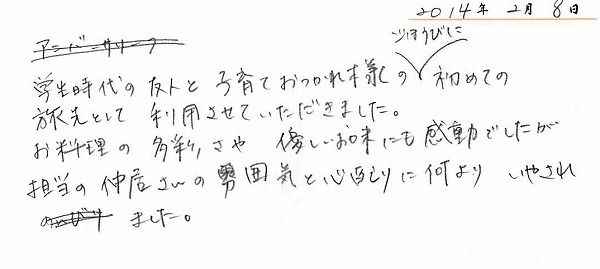 2014年 2月 8日
アニバーサリーの
ごほうびに
学生時代の友人と子育ておつかれ様の 初めての
旅先として 利用させていただきました。
お料理の多彩さや 優しいお味にも感動でしたが
担当の仲居さんの雰囲気と心配りに何より いやされ
ました。